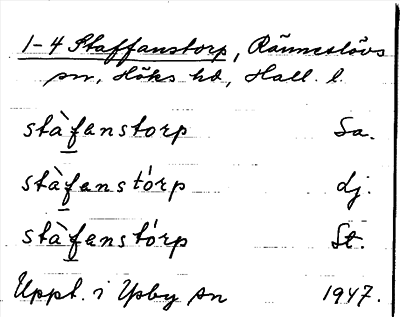 1-4 Staffanstorp, Ränneslövs
sn, Höks hd, Hall. l.
stàfanstorp Sa.
stàfanstórp dj.
stàfanstórp St.
Uppt. i Ysby sn 1947.